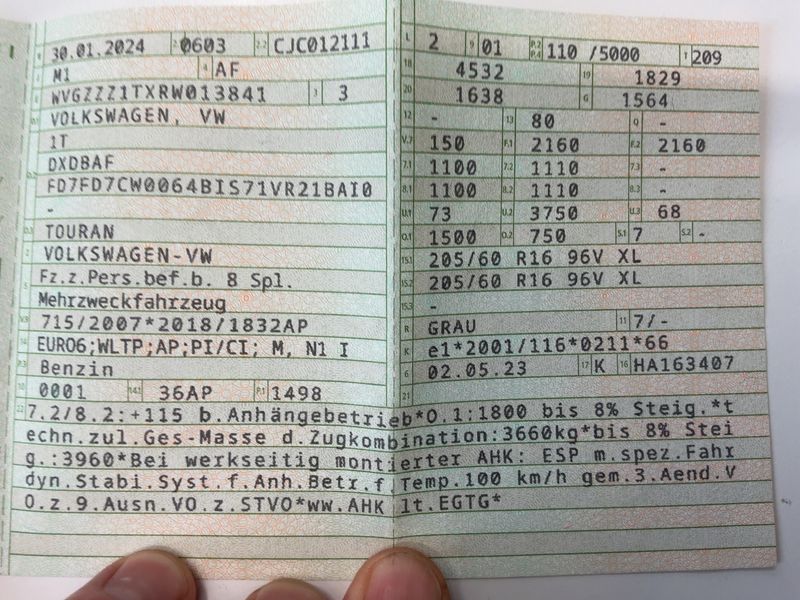 30.01.2024 2.1 0603 2.2 CJC012111
M1 4 AF
E WVGZZZ1TXRW013841 3 3
VOLKSWAGEN, VW
1T
DXDBAF
FD7FD7CW0064BIS71VR21BAI0
-
D.3 TOURAN
2 VOLKSWAGEN-VW
5 Fz.z.Pers.bef.b. 8 Spl.
Mehrzweckfahrzeug
V.9 715/2007*2018/1832AP
14 EURO6;WLTP;AP;PI/CI; M, N1 I
P.3 Benzin
10 0001 14.1 36AP P.1 1498
L 2 9 01 P.2 P.4 110 /5000 T 209
18 4532 19 1829
20 1638 G 1564
12 - 13 80 Q -
V.7 150 F.1 2160 F.2 2160
7.1 1100 7.2 1110 7.3 -
8.1 1100 8.2 1110 8.3 -
U.1 73 U.2 3750 U.3 68
O.1 1500 O.2 750 S.1 7 S.2 -
15.1 205/60 R16 96V XL
15.2 205/60 R16 96V XL
15.3 -
R GRAU 11 7/-
K e1*2001/116*0211*66
6 02.05.23 17 K 16 HA163407
21
22 7.2/8.2:+115 b.Anhängebetrieb*O.1:1800 bis 8% Steig.*t
echn.zul.Ges-Masse d.Zugkombination:3660kg*bis 8% Stei
g.:3960*Bei werkseitig montierter AHK: ESP m.spez.Fahr
dyn.Stabi.Syst.f.Anh.Betr.f.Temp.100 km/h gem.3.Aend.V
O.z.9.Ausn.VO.z.STVO*ww.AHK lt.EGTG*